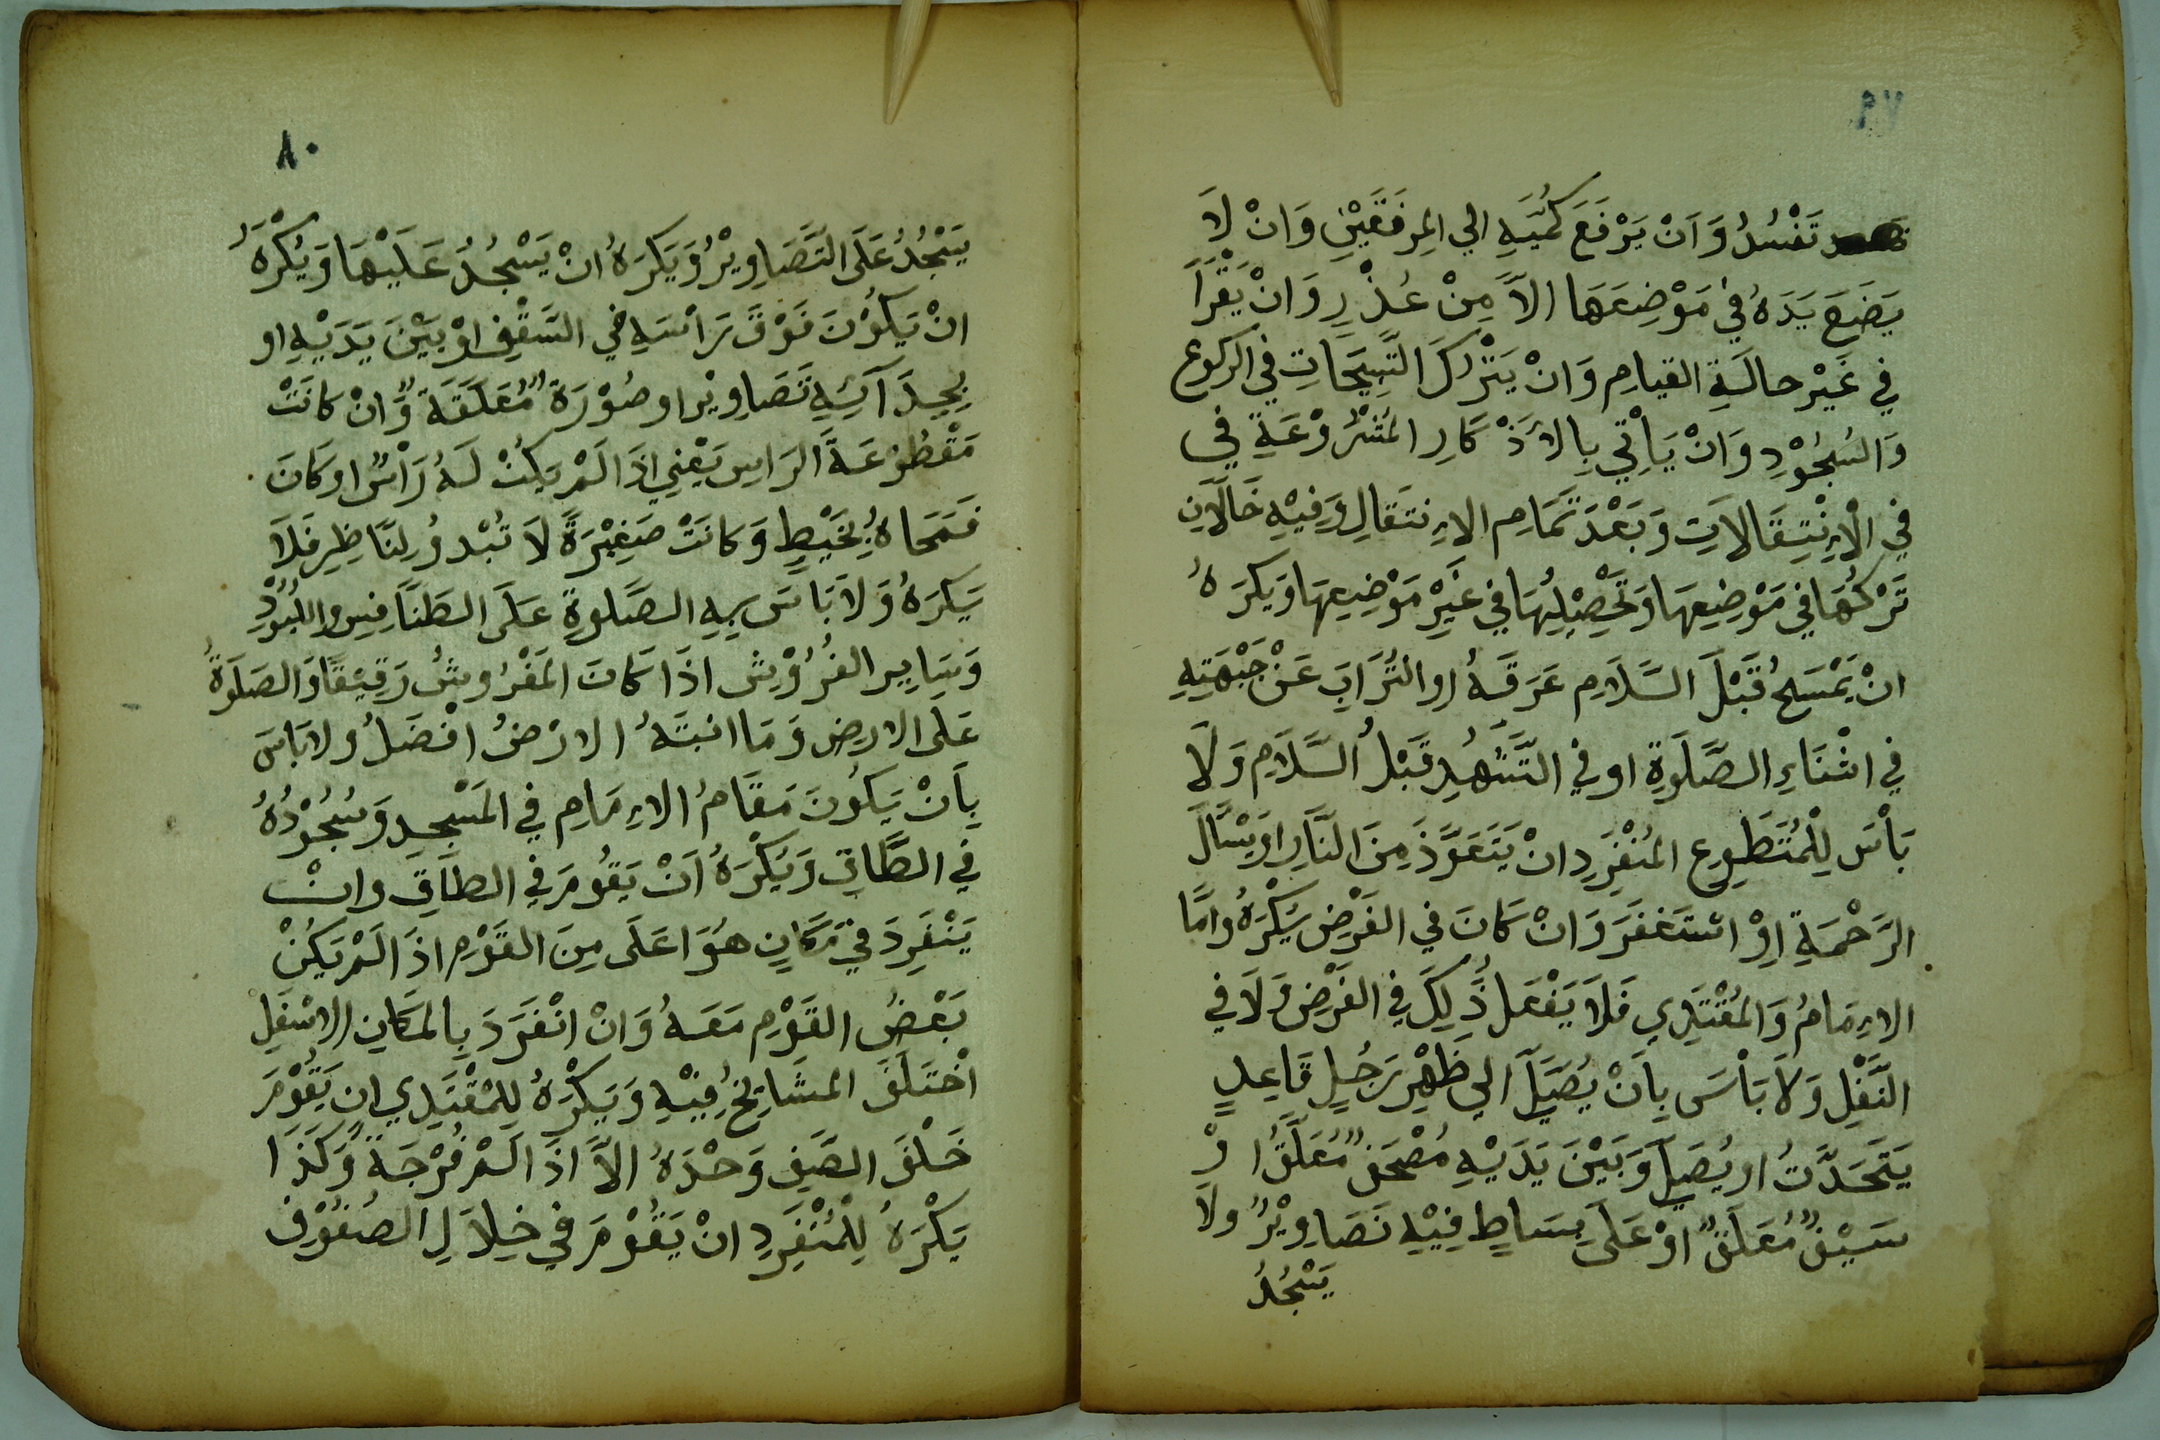 ٣٧
تَفْسُدُ وَاَنْ يَرْفَعَ كُمَّيْهِ الي المِرفَقَيْنِ وَانْ لاَ
يَضَعَ يَدَهُ فِي مَوْضِعَهَا الاَّ مِنْ عُذْرِ وَانْ يَقْرَأَ
فِي غَيْرِ حالَةِ القيامِ وَانْ يَتْرُكَ التَّسِبيحَاتِ في الركوع
وَالسُجُوْدِ وَانْ يَأتِي بِالاَذْكَارِ المَشْرُوْعَةِ فِي
في الْاِنْتِقَالاَتِ وَبَعْدَ تَمَامِ الاِنتَقالِ وَفِيْهِ خَلَلاَنِ
تَرْكُهَا فِي مَوْضِعِهَا وَتَحْصِيْلِهَا في غَيْرِ مَوْضِعِهَا وَيَكرَهُ
انْ يَمْسَحُ قَبْلَ السَّلاَمِ عَرَقَهُ اوالتُرَابَ عَنْ جَبْهَتِهِ
فِي اثْنَاءِ الصَّلَوةِ او فِي التَّشَهُدِ قَبْلُ السَّلاَمِ وَلاَ
بَأْسَ لِلْمُتَطَوِعِ المُنْفَرِدِ انْ يَتَعَوَّذَ مِنَ النَّارِ اوَيَسْأَلَ
الرَّحْمَةِ اوْ اسْتَغفَرَ وَانْ كَانَ فِي الفَرْضِ يَكْرَهُ وامَّا
الاِمَامُ وَالمُقْتَدِي فَلاَ يَفْعَلُ ذَلِكَ فِي الفَرْضِ وَلاَ فِي
النَّفْلِ وَلاَ بَأْسَ بِاَنْ يُصَلِّ الي ظَهْرِ رَجُلٍ قَاعِدٍ
يَتَحَدَّثُ اويُصَلِ وَبَيْنَ يَدَيْهِ مُصْحَفٌ مُعَلَّقٌ اوْ
سَيْفٌ مُعَلَقٌ اوْ عَلَى بِسَاطٍ فِيْهِ تَصَاوِيْرٌ ولا
يَسْجُدُ
٨٠
يَسْجُدُ عَلَى التَّصَاوِيْرُ وَيَكرَهُ انْ يَسْجُدُ عَلَيْهَا وَيُكْرَهُ
انْ يَكُوْنَ فَوْقَ رَاسَهِ فِي السَّقْفِ اوْ بَيْنَ يَدَيْهِ او
بِحِذَآئِهِ تَصَاوِيْر او صُوْرَةٌ مُعَلَقَةٌ وَانْ كانَتْ
مَقْطُوْعَةَ الرَاسِ يَعْنِي اذَا لَمْ يَكُنْ لَهُ رَأسٌ اوكَانَ
فَمَحَاهُ بِخَيْطٍ وَكانَتْ صَغِيْرَةً لاَ تُبْدوُ لِلنَّاظِرِ فَلاَ
يَكرَهُ وَلاَ بَاسَ بِهِ الصَّلوةِ عَلَى الطَنَافِسِ واللُبُوْدِ
وَسَايِرِ الفُرُوْشِ اذَا كَانَ المَفْرُوشُ رَقِيْقًا وَالصَلَوةُ
عَلَى الارضِ وَمَا انبتَهُ الارْضُ افْضَلُ ولابَاسَ
بِاَنْ يَكُونَ مَقَامُ الاِمَامِ فِي المَسْجِدِ وَسُجُوْدُهُ
فِي الطَّاقِ وَيَكْرَهُ اَنْ يَقُومَ فِي الطاَقِ وانْ
يَنْفَرِدَ فِيْ مَكَانٍ هُوَ اعَلَى مِنَ القَوْمِ اذَا لَمْ يَكُنْ
بَعْضُ القَوْمِ مَعَهُ وَانْ انْفَرَدَ بِالمَكَانِ الاسْفَلِ
اخْتَلَفَ المشَايِخُ فِيْهِ وَيَكْرَهُ لِلمُقْتَدِي ان يَقُوْمَ
خَلْفَ الصَّفِ وَحْدَهُ الاَّ اذَا لَمْ فُرْجَةً وَكَذَا
يَكْرَهُ لِلْمُنْفَرِدِ انْ يَقُوْمَ فِي خِلاَلِ الصُفُوْفِ